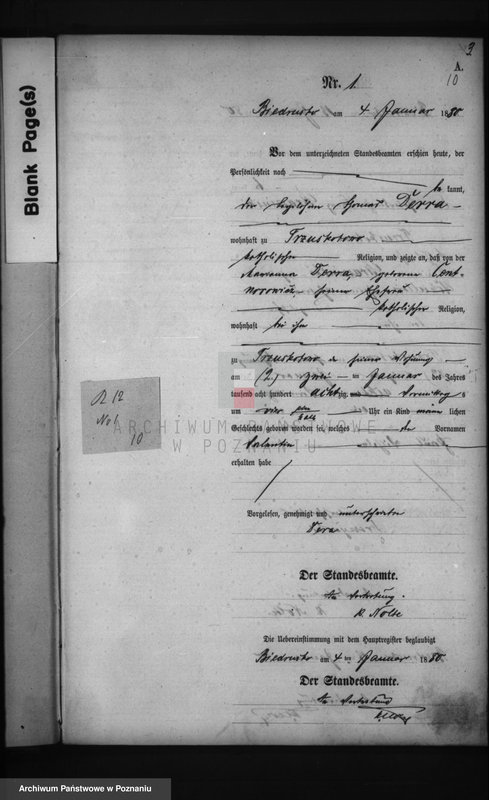 Blank Page(s)
9
A.
10
Nr. 1.
Biedrusko am 4 Januar 1880
Vor dem unterzeichneten Standesbeamten erschien heute, der
Persönlichkeit nach
be kannt,
der Derra
wohnhaft zu Treuskotowo
katholischer Religion, und zeigte an, daß von der
Marianna Derra, geborene
seiner Ehefrau
katholischer Religion,
wohnhaft bei ihm
zu Treuskotowo in seiner Wohnung
am (2) zwei ten Januar des Jahres
tausend acht hundert achtzig und Vormittag s
um vier Uhr ein Kind männ lichen
Geschlechts geboren worden sei, welches den Vornamen
Valentin
erhalten habe
Vorgelesen, genehmigt und unterschrieben
Dera
Der Standesbeamte.
In Vertretung.
Nolte
Die Uebereinstimmung mit dem Hauptregister beglaubigt
Biedrusko am 4 ten Januar 1880.
Der Standesbeamte.
In Vertretung
No 1
10
ARCHIWUM PAŃSTWOWE
W POZNANIU
Archiwum Państwowe w Poznaniu